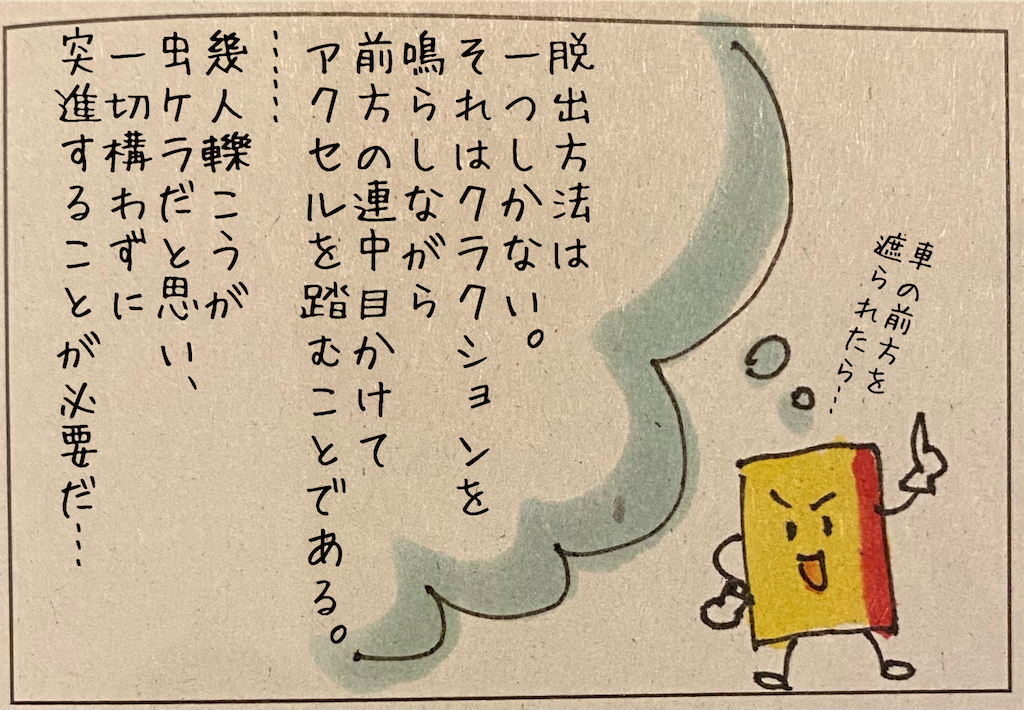 車の前方を
遮られたら…
脱出方法は
一つしかない。
それはクラクションを
鳴らしながら
前方の連中目かけて
アクセルを踏むことである。
……
幾人轢こうが
虫ケラだと思い、
一切構わずに
突進することが必要だ…